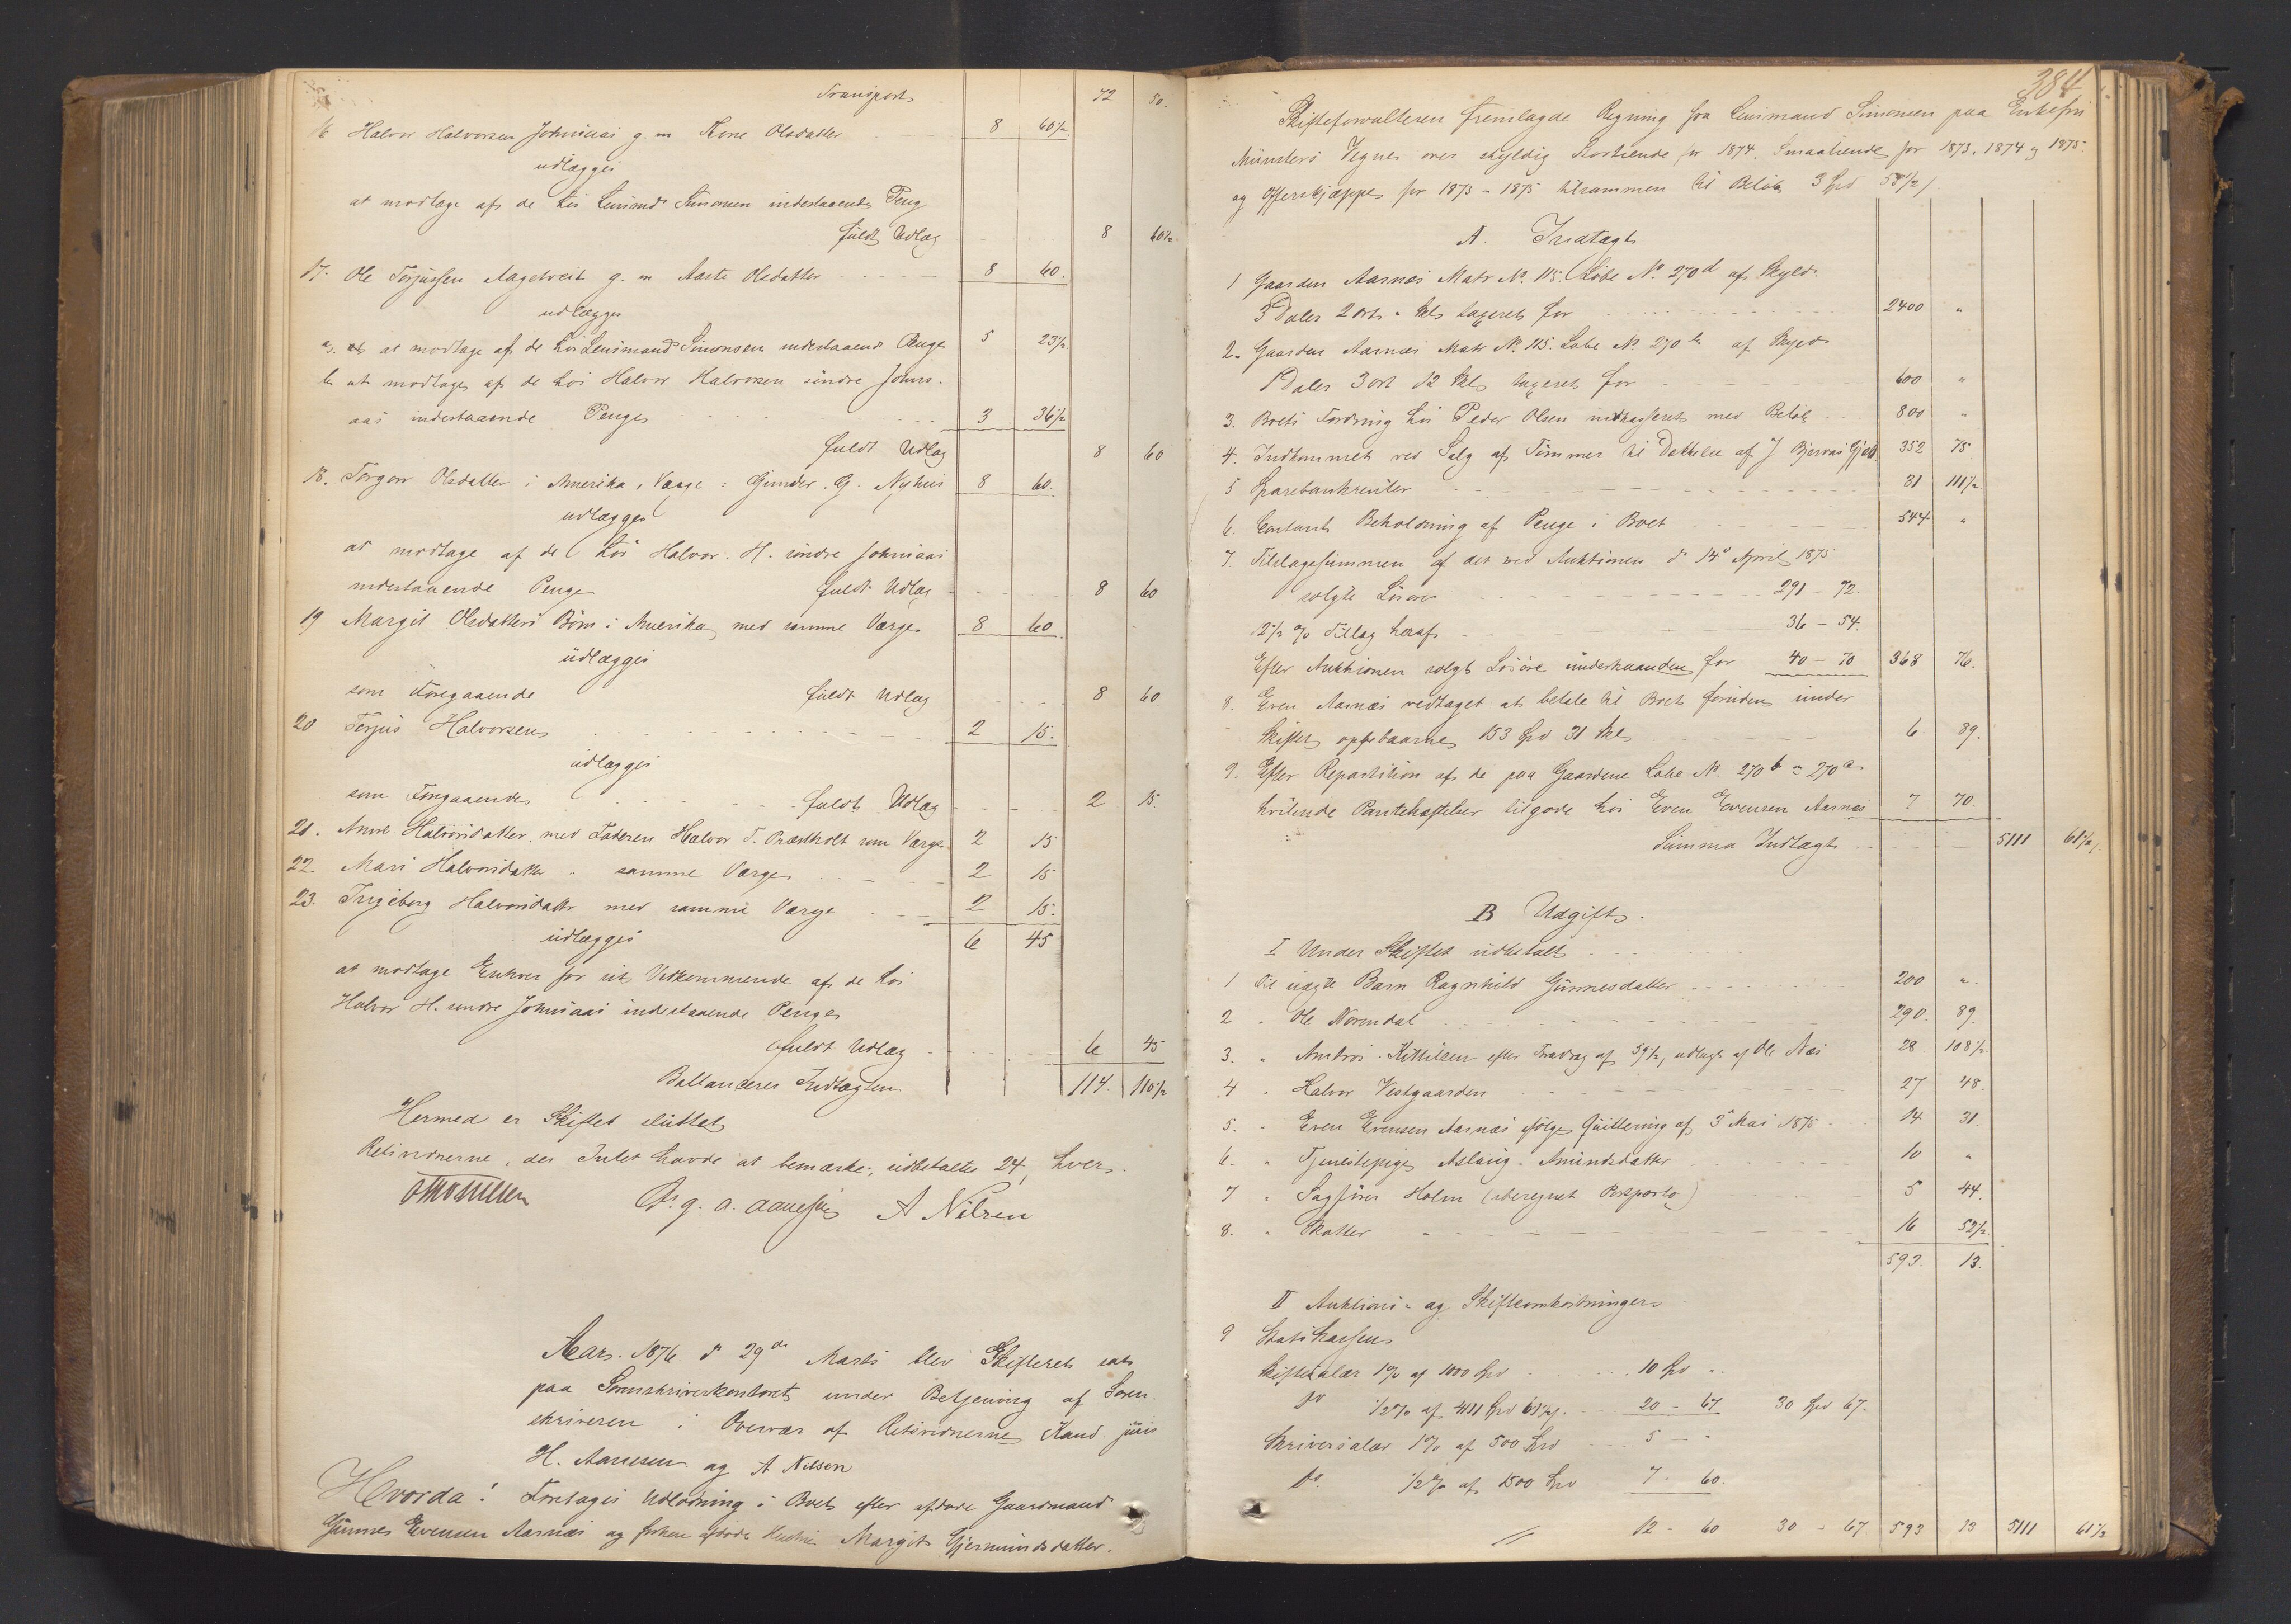 Transport 72 50.
16 Halvor Halvorsen Johnsaas g. m Kone Olsdatter 8 60 1/2
udlægges
at modtage af de hos Lensmd Simonsen indestaaende Penge
fuldt Udlæg 8 60 1/2
17. Ole Torjussen g. m Aaste Olsdatter 8 60.
udlægges
a. at modtage af de hos Lensmand Simonsen indestaaende Penge 5 23 1/2
b. at modtage af de hos Halvor Halvorsen søndre Johns-
aas indestaaende Penge 3 36 1/2
fuldt Udlæg 8 60
18. Torgon Olsdatter i Amerika, Værge: Gunder. G. Nyhus 8 60.
udlægges
at modtage af de hos Halvor. H. søndre Johnsaas
indestaaende Penge fuldt Udlæg 8 60
19 Margit Olsdatters Børn i Amerika med samme Værge 8 60.
udlægges
som Foregaaende fuldt Udlæg 8 60
20 Torjus Halvorsen 2 15.
udlægges
som Foregaaende fuldt Udlæg 2 15.
21. Anne Halvorsdatter med Faderen Halvor T. Præstholt som Værge 2 15
22. Mari Halvorsdatter - samme Værge 2 15
23. Ingeborg Halvorsdatter med samme Værge 2 15.
udlægges 6 45
at modtage Enhver for sit Vedkommende af de hos
Halvor H. søndre Johnsaas indestaaende Penge
fuldt Udlæg 6 45
Ballancerer Indtægten 114. 110 1/2
Hermed er Skiftet sluttet
Retsvidnerne, der Intet havde at bemærke, udbetaltes 24 hver.
A Nilsen
Aar 1876 d 29de Marts blev Skifteret sat
paa Sorenskriverkontoret under Betjening af Soren-
skriveren i Overvær af Retsvidnerne Kand juris
H. Aanesen og A Nilsen
Hvorda! Foretages Udlodning i Boet efter afdøde Gaardmand
Gunnes Evensen Aarnæs og forhen afdøde Hustru Margit Gjermundsdatter.
384
Skifteforvalteren fremlagde Regning fra Lensmand Simonsen paa Enkefru
Münsters Vegne over skyldig Kortiende for 1874, Smaatiende for 1873, 1874 og 1875
og Offerskjæppe for 1873 - 1875 tilsammen til Beløb 3 Spd 58 1/2 /.
A. Indtægt
1 Gaarden Aarnæs Matr No. 115. Løbe No. 270d af Skyld
5 Daler 2 ort - skl taxeret for 2400 "
2. Gaarden Aarnæs Matr No. 115. Løbe No 270b af Skyld
1 Daler 3 ort 12 skl taxeret for 600 "
3. Boets Fordring hos Peder Olsen indkasseret med Beløb 800 "
4. Indkommet ved Salg af Tømmer til Dækkelse af J Bjernæs Gjæld 352 75
5 Sparebankrenter 31 111 1/2
6. Contant Beholdning af Penge i Boet 544 "
7. Tilslagssummen af det ved Auktionen d 14de April 1875
solgte Løsøre 291 - 72.
12 1/2 % Tillæg heraf 36 - 54.
Efter Auktionen solgt Løsøre underhaanden for 40 - 70 368 76.
8. Even Aarnæs vedtaget at betale til Boet foruden under
Skiftet opebaarne 153 Spd 31 skl 6 89.
9. Efter Repartition af de paa Gaardene Løbe No. 270b og 270a
hvilende Pantehæftelser tilgode hos Even Evensen Aarnæs 7 70.
Summa Indtægt 5111 61 1/2 /.
B Udgift.
I Under Skiftet udbetalt
1 Til uægte Barn Ragnhild Gunnesdatter 200 "
2 " Ole Norendal 290. 89.
3. " Ambros. Kittilsen efter Fradrag af 59 1/2, udlagt af Ole Næs 28 108 1/2
4 " Halvor Vestgaarden 27 48
5. " Even Evensen Aarnæs ifølge Quittering af 3de Mai 1875 14 31.
6. " Tjenestepige Aslaug Amundsdatter 10 "
7. " Sagfører Holm (iberegnet Postporto) 5 44.
8. " Skatter 16 52 1/2
593. 13.
II Auktions- og Skifteomkostninger
9 Statskassen
Skiftesalær 1% af 1000 Spd 10 Spd "
do 1/2% af 4111 Spd 61 1/2 /. 20 - 67 30 Spd 67.
Skriversalær 1% af 500 Spd 5 - "
do. 1/2% af 1500 Spd 7. 60.
12 - 60 30 - 67. 593 13 5111 61 1/2